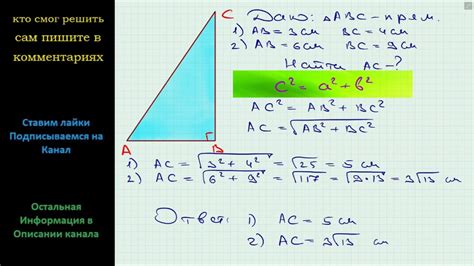 кто смог решить
сам пишите в
комментариях
Ставим лайки
Подписываемся на
Канал
Остальная
Информация в
Описании канала
C
A
B
Дано: △ABC – прям.
1) AB = 3 см BC = 4 см
2) AB = 6 см BC = 9 см
Найти AC – ?
c² = a² + b²
AC² = AB² + BC²
AC = √(AB² + BC²)
1) AC = √(3² + 4²) = √25 = 5 см
2) AC = √(6² + 9²) = √117 = √(9·13) = 3√13 см
Ответ: 1) AC = 5 см
2) AC = 3√13 см